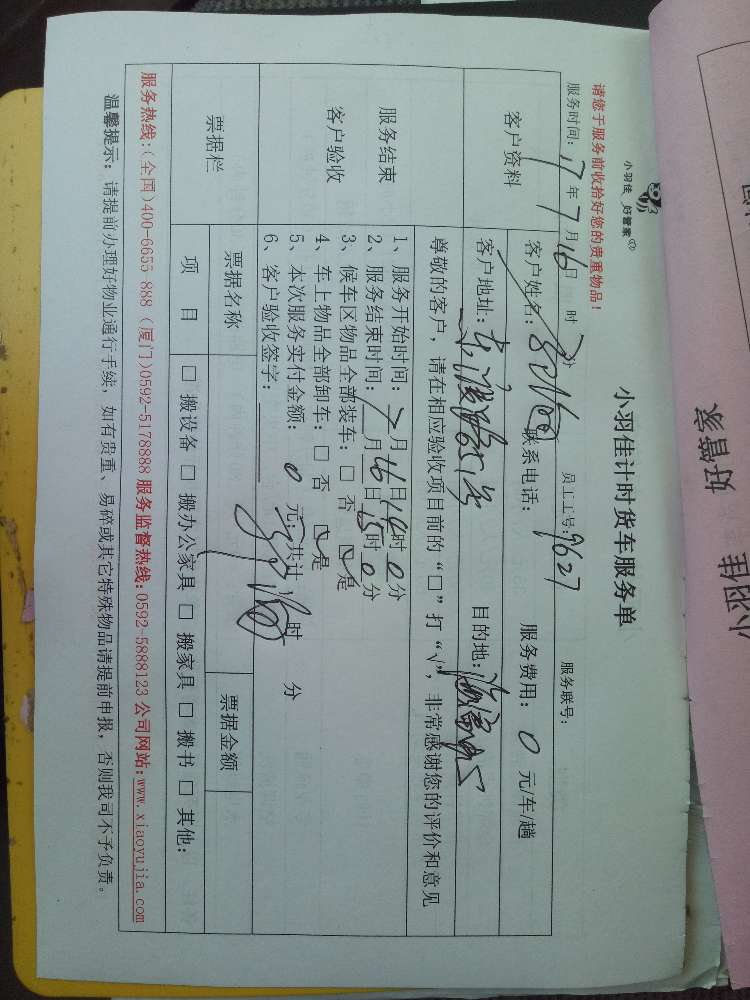 小羽佳 好管家
小羽佳计时货车服务单
请您于服务前收拾好您的贵重物品!
服务时间: 17年7月16日 时 分 员工工号: 9627 服务联号:
客户资料
客户姓名: 联系电话: 服务费用: 0 元/车/趟
客户地址: 目的地:
服务结束
客户验收
尊敬的客户，请在相应验收项目前的“□”打“√”，非常感谢您的评价和意见
1、服务开始时间: 7月16日14时0分
2、服务结束时间: 月16日15时0分
3、候车区物品全部装车: □ 否 ☑ 是
4、车上物品全部卸车: □ 否 ☑ 是
5、本次服务实付金额: 0 元，共计 1 时 分
6、客户验收签字:
票据栏
票据名称 票据金额
项 目 □ 搬设备 □ 搬办公家具 □ 搬家具 □ 搬书 □ 其他:
服务热线:(全国)400-6655 888 (厦门)0592-5178888 服务监督热线:0592-5888123 公司网站:www.xiaoyujia.com
温馨提示: 请提前办理好物业通行手续，如有贵重、易碎或其它特殊物品请提前申报，否则我司不予负责。
小羽佳
好管家